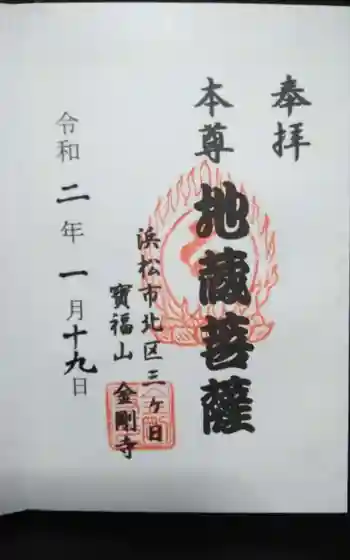 奉拝
本尊
地蔵菩薩
浜松市北区三ヶ日
寶福山 金剛寺
令和二年一月十九日